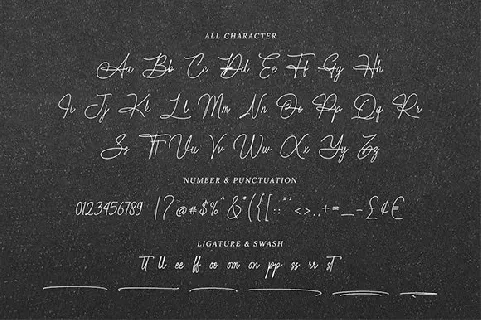 ALL CHARACTER
Aa Bb Cc Dd Ee Ff Gg Hh
Ii Jj Kk Ll Mm Nn Oo Pp Qq Rr
Ss Tt Uu Vv Ww Xx Yy Zz
NUMBER & PUNCTUATION
0123456789 !?@#$%^&*({[:;"'<>.,+=_-£¢€
LIGATURE & SWASH
tt ll ee ff oo om on pp ss rr st